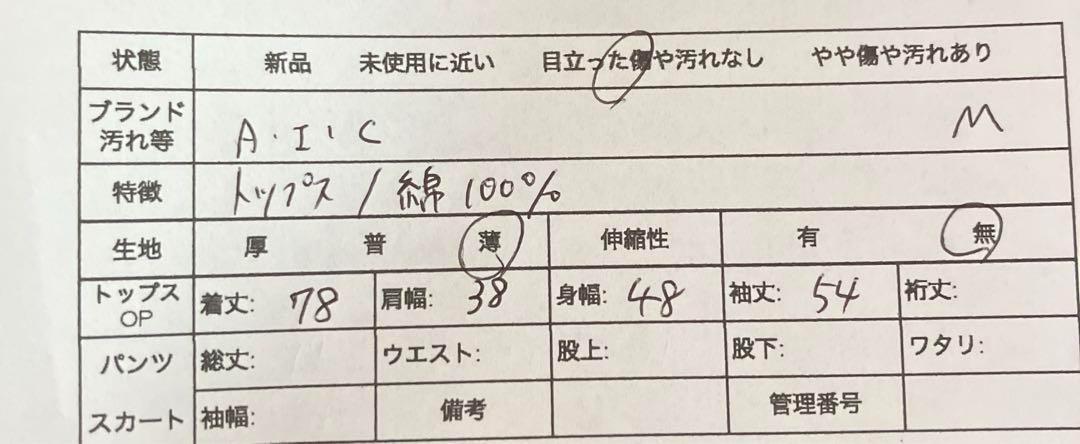 状態 新品 未使用に近い 目立った傷や汚れなし やや傷や汚れあり
ブランド
汚れ等 A・I・C M
特徴 トップス / 綿 100%
生地 厚 普 薄 伸縮性 有 無
トップス
OP 着丈: 78 肩幅: 38 身幅: 48 袖丈: 54 裄丈:
パンツ 総丈: ウエスト: 股上: 股下: ワタリ:
スカート 袖幅: 備考 管理番号